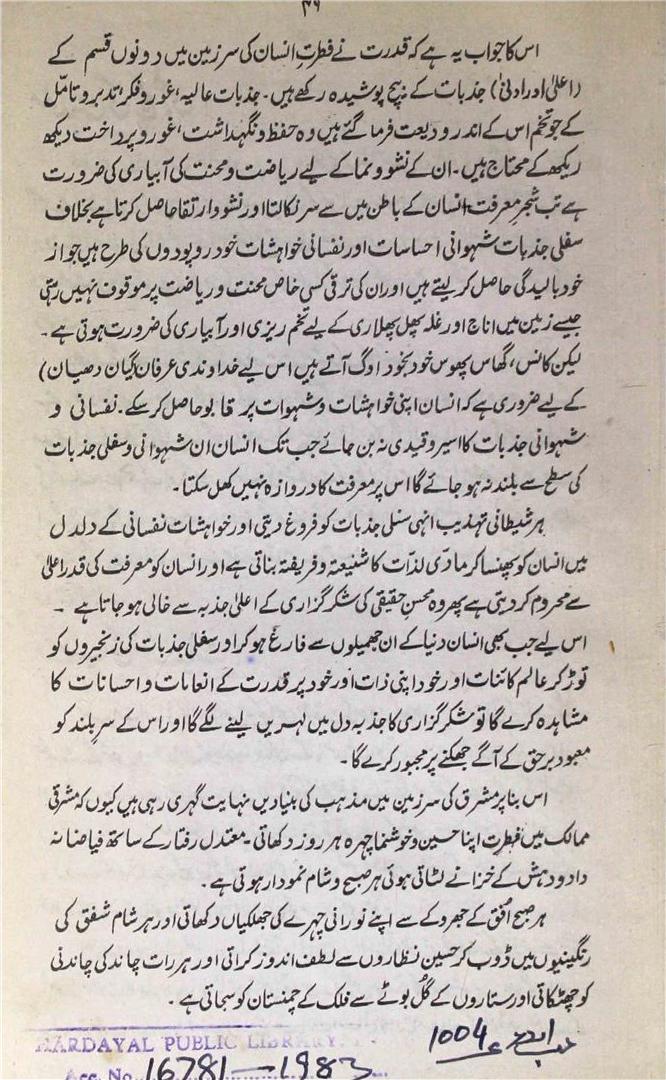 ۳۹
اس کا جواب یہ ہے کہ قدرت نے فطرتِ انسان کی سرزمین میں دونوں قسم کے
(اعلیٰ اور ادنیٰ) جذبات کے بیج پوشیدہ رکھے ہیں۔ جذبات عالیہ، غور و فکر، تدبر و تامّل
کے جو تخم اس کے اندر ودیعت فرما گئے ہیں وہ حفظ و نگہداشت، غور و پرداخت دیکھ
ریکھ کے محتاج ہیں۔ ان کے نشوونما کے لیے ریاضت و محنت کی آبیاری کی ضرورت
ہے تب شجرِ معرفت انسان کے باطن میں سے سر نکالتا اور نشو وارتقا حاصل کرتا ہے بخلاف
سفلی جذبات شہوانی احساسات اور نفسانی خواہشات خود رو پودوں کی طرح ہیں جو از
خود بالیدگی حاصل کر لیتے ہیں اور ان کی ترقی کسی خاص محنت و ریاضت پر موقوف نہیں رہتی
جیسے زمین میں اناج اور غلہ پھل پھلاری کے لیے تخم ریزی اور آبیاری کی ضرورت ہوتی ہے۔
لیکن کانس، گھاس پھوس خود بخود اوگ آتے ہیں اس لیے خداوندی عرفان (گیان دھیان)
کے لیے ضروری ہے کہ انسان اپنی خواہشات و شہوات پر قابو حاصل کر سکے۔ نفسانی و
شہوانی جذبات کا اسیر و قیدی نہ بن جائے جب تک انسان ان شہوانی و سفلی جذبات
کی سطح سے بلند نہ ہو جائے گا اس پر معرفت کا دروازہ نہیں کھل سکتا۔
ہر شیطانی تہذیب انہی سفلی جذبات کو فروغ دیتی اور خواہشات نفسانی کے دلدل
میں انسان کو پھنسا کر مادّی لذّات کا شنیعتہ و فریفتہ بناتی ہے اور انسان کو معرفت کی قدر اعلیٰ
سے محروم کر دیتی ہے پھر وہ محسنِ حقیقی کی شکر گزاری کے اعلیٰ جذبہ سے خالی ہو جاتا ہے۔
اس لیے جب بھی انسان دنیا کے ان جھمیلوں سے فارغ ہو کر اور سفلی جذبات کی زنجیروں کو
توڑ کر عالم کائنات اور خود اپنی ذات اور خود پر قدرت کے انعامات و احسانات کا
مشاہدہ کرے گا تو شکر گزاری کا جذبہ دل میں لہریں لینے لگے گا اور اس کے سرِ بلند کو
معبود برحق کے آگے جھکنے پر مجبور کرے گا۔
اس بنا پر مشرق کی سرزمین میں مذہب کی بنیادیں نہایت گہری رہی ہیں کیوں کہ مشرقی
ممالک میں فطرت اپنا حسین و خوشنما چہرہ ہر روز دکھاتی۔ معتدل رفتار کے ساتھ فیاضانہ
دادو دہش کے خزانے لٹاتی ہوئی ہر صبح و شام نمودار ہوتی ہے۔
ہر صبح اُفق کے جھروکے سے اپنے نورانی چہرے کی جھلکیاں دکھاتی اور ہر شام شفق کی
رنگینیوں میں ڈوب کر حسین نظاروں سے لطف اندوز کراتی اور ہر رات چاند کی چاندنی
کو چھٹکاتی اور ستاروں کے گُل بوٹے سے فلک کے چمنستان کو سجاتی ہے۔
1004
HARDAYAL PUBLIC LIBRARY
Acc. No. 16781—1983